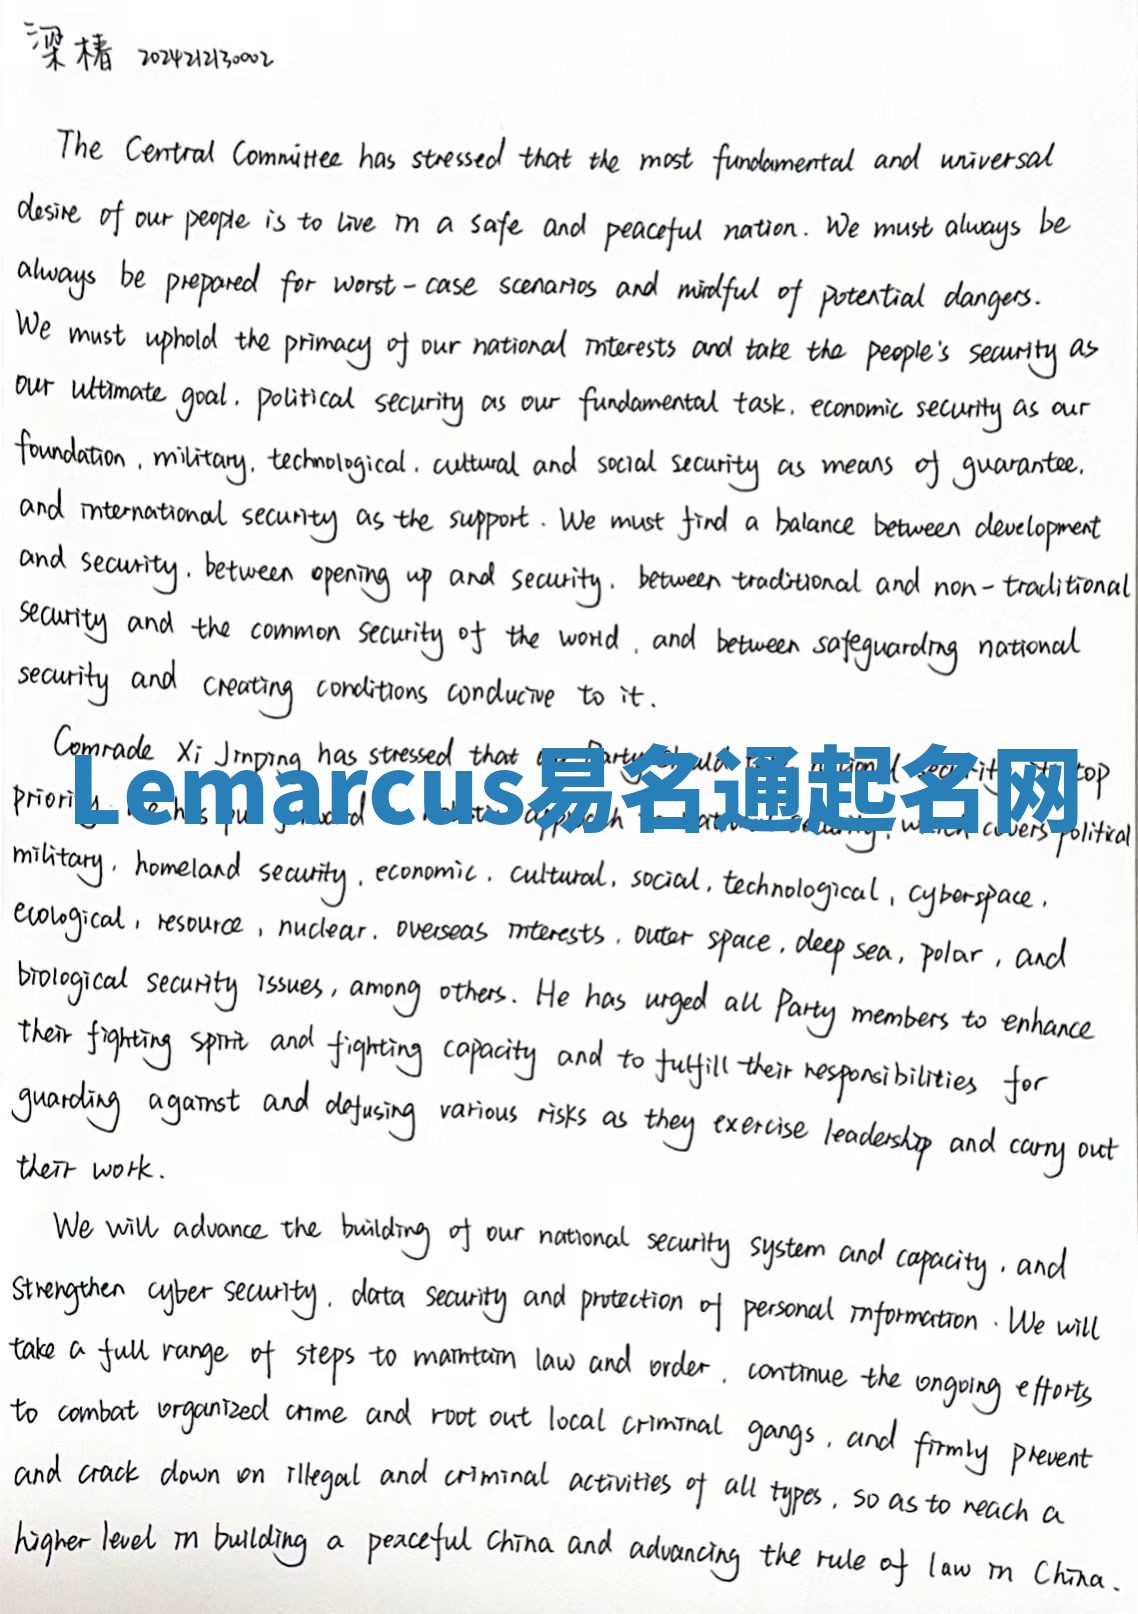 梁椿 2024212130002
The Central Committee has stressed that the most fundamental and universal
desire of our people is to live in a safe and peaceful nation. We must always be
always be prepared for worst-case scenarios and mindful of potential dangers.
We must uphold the primacy of our national interests and take the people's security as
our ultimate goal, political security as our fundamental task, economic security as our
foundation, military, technological, cultural and social security as means of guarantee,
and international security as the support. We must find a balance between development
and security, between opening up and security, between traditional and non-traditional
security and the common security of the world, and between safeguarding national
security and creating conditions conducive to it.
Comrade Xi Jinping has stressed that Party top
Lemarcus易名通起名网
which covers political
military, homeland security, economic, cultural, social, technological, cyberspace,
ecological, resource, nuclear, overseas interests, outer space, deep sea, polar, and
biological security issues, among others. He has urged all Party members to enhance
their fighting spirit and fighting capacity and to fulfill their responsibilities for
guarding against and defusing various risks as they exercise leadership and carry out
their work.
We will advance the building of our national security system and capacity, and
strengthen cyber security, data security and protection of personal information. We will
take a full range of steps to maintain law and order, continue the ongoing efforts
to combat organized crime and root out local criminal gangs, and firmly prevent
and crack down on illegal and criminal activities of all types, so as to reach a
higher level in building a peaceful China and advancing the rule of law in China.